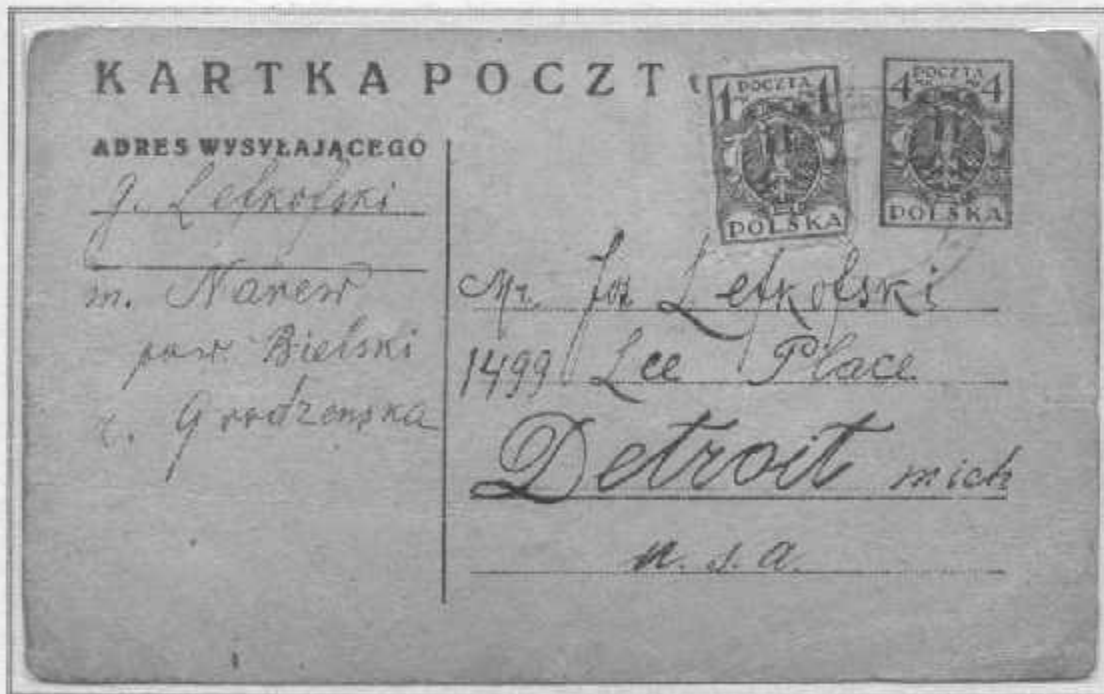 KARTKA POCZT
1 POCZTA 1
POLSKA
4 POCZTA 4
POLSKA
ADRES WYSYŁAJĄCEGO
J. Lefkofski
m. Narew
pow. Bielski
z. Grodzenska
Mr. Jos Lefkofski
1499 Lee Place
Detroit mich
u.s.a.